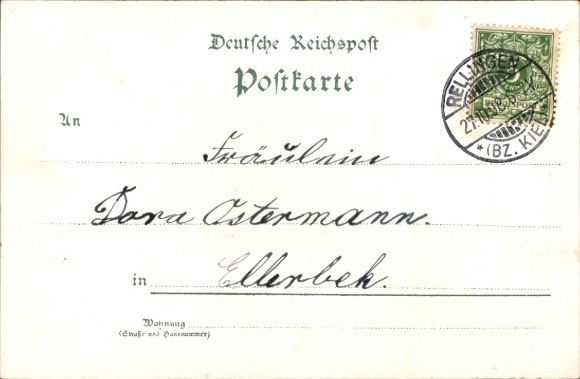 Deutsche Reichspost
Postkarte
RELLINGEN
* (BZ. KIEL)
An
Fräulein
Dora Ostermann.
in Ellerbek.
Wohnung
(Straße und Hausnummer)